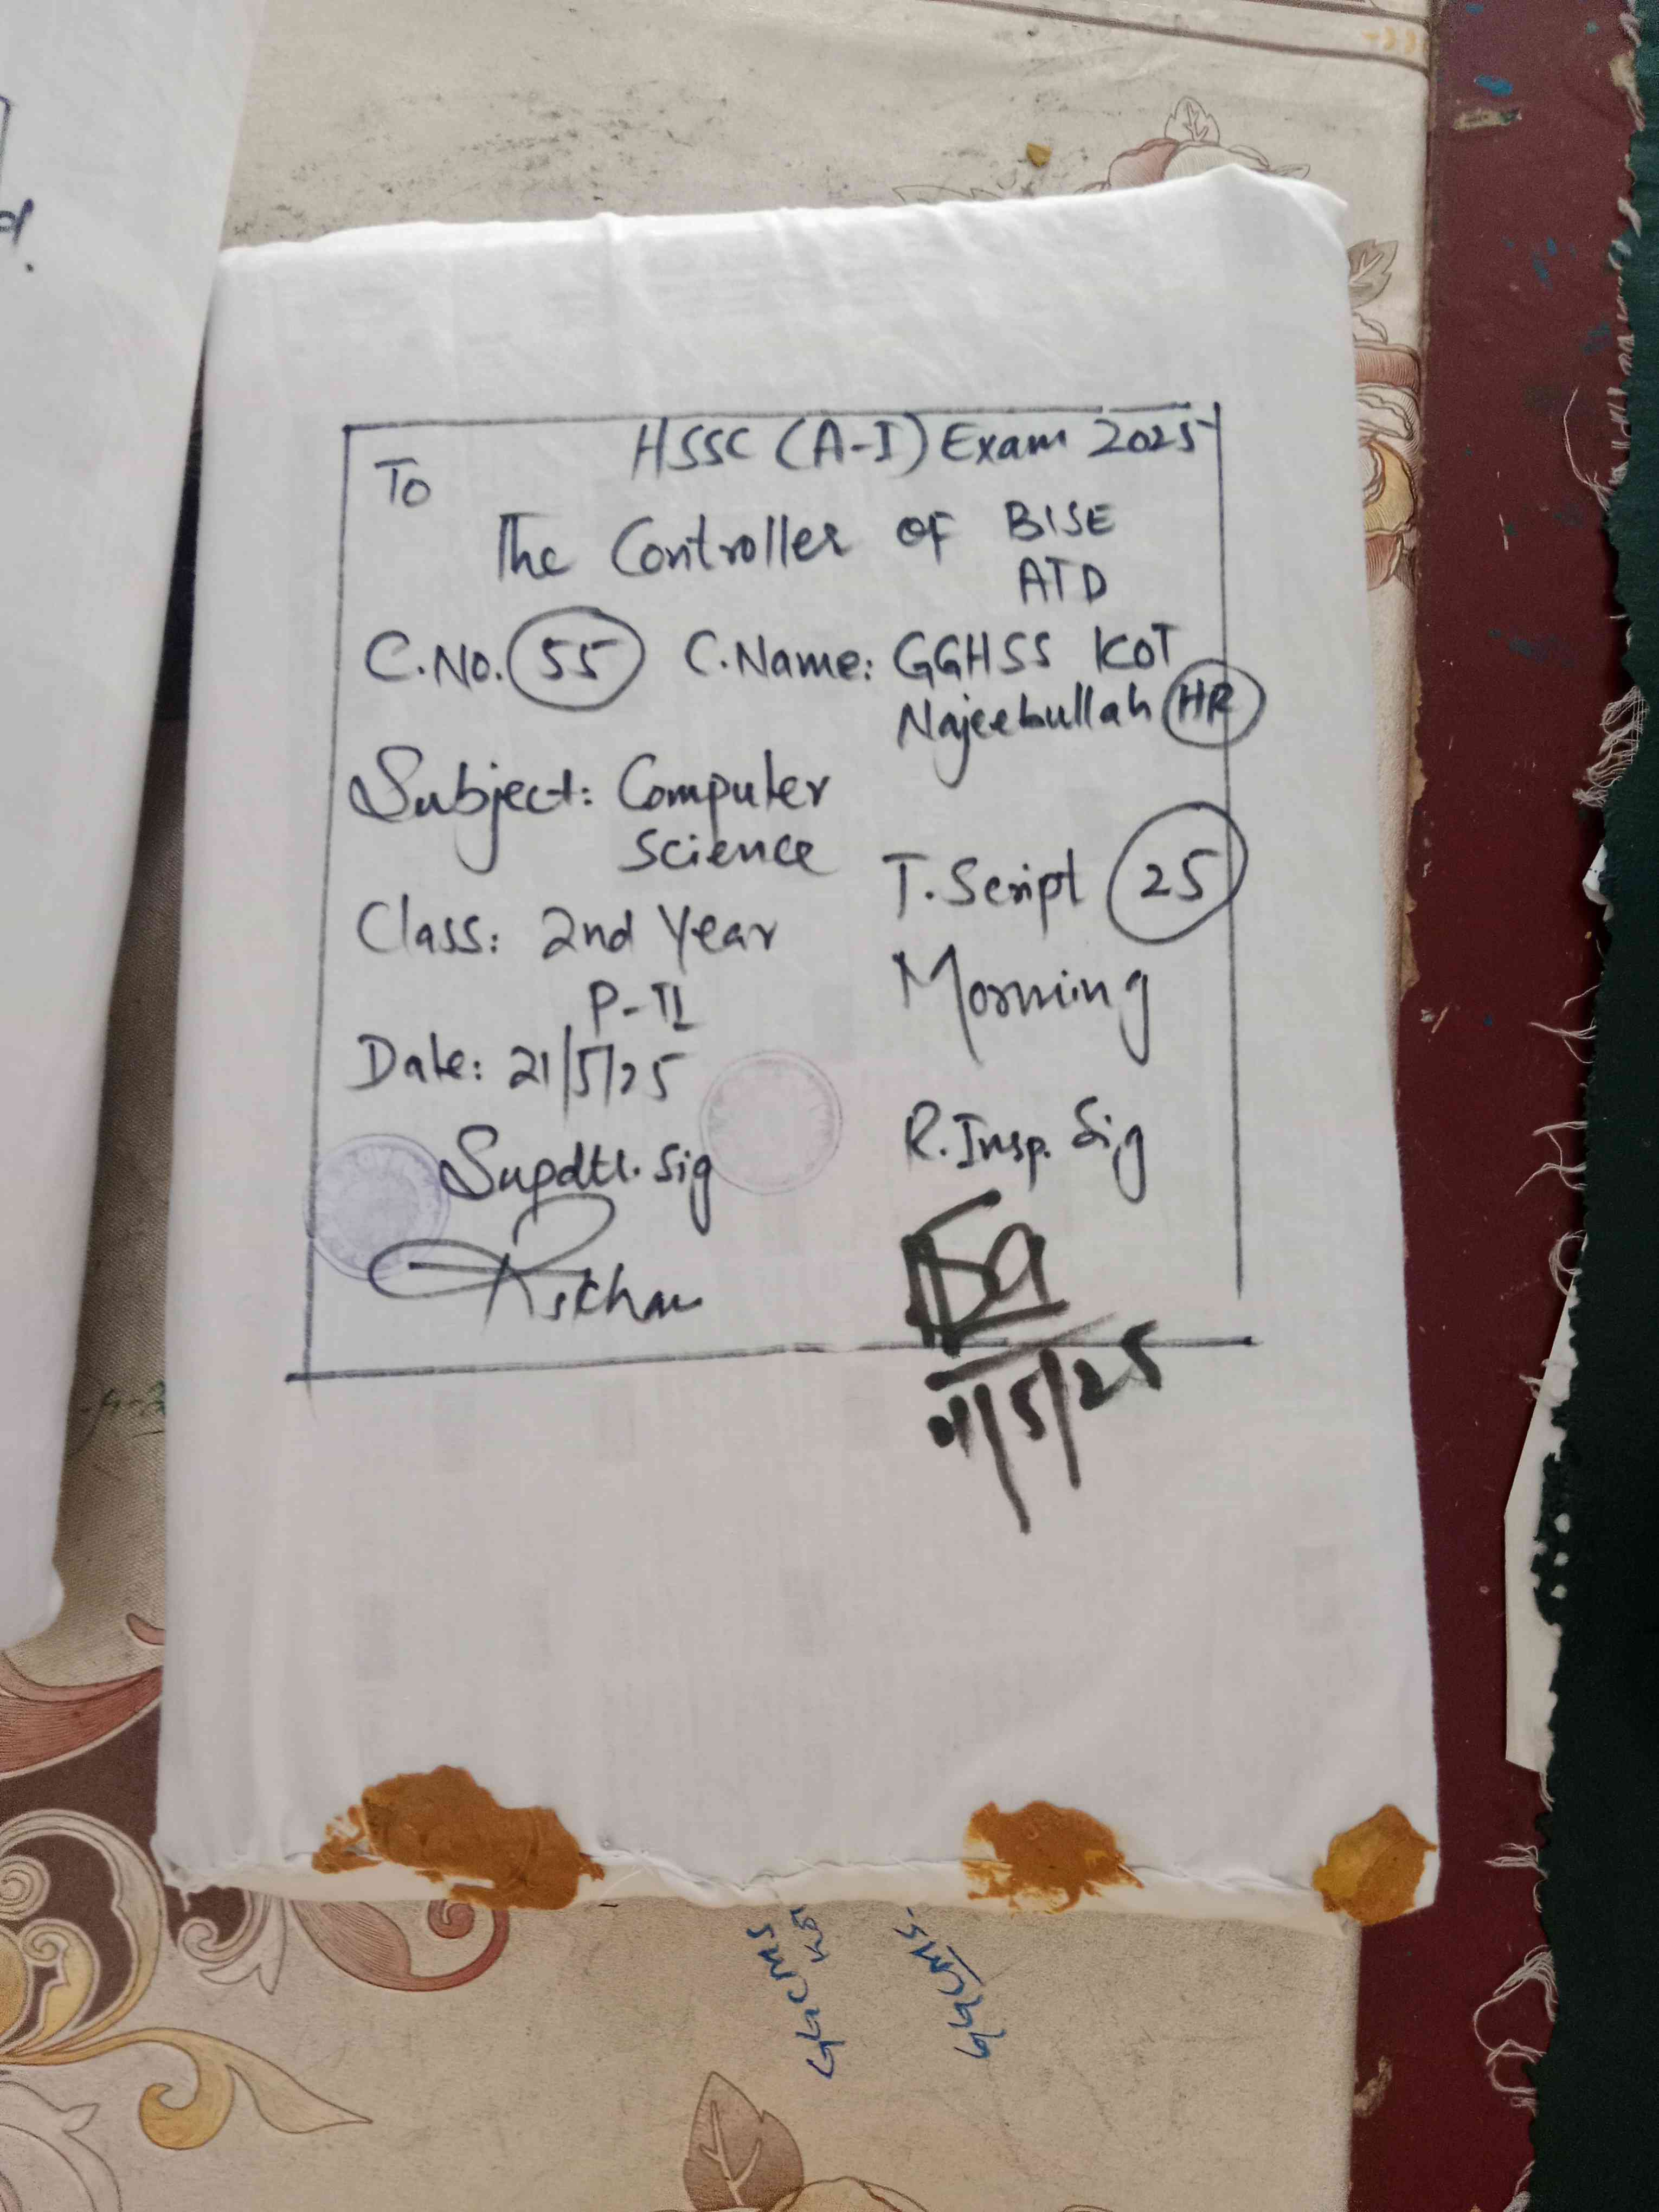 HSSC (A-I) Exam 2025
To
The Controller of BISE
ATD
C.No. 55 C.Name: GGHSS KOT
Najeebullah HR
Subject: Computer
Science
T. Script 25
Class: 2nd Year
P-II
Morning
Date: 21/5/25
Supdtt. Sig
R. Insp. Sig
21/5/25